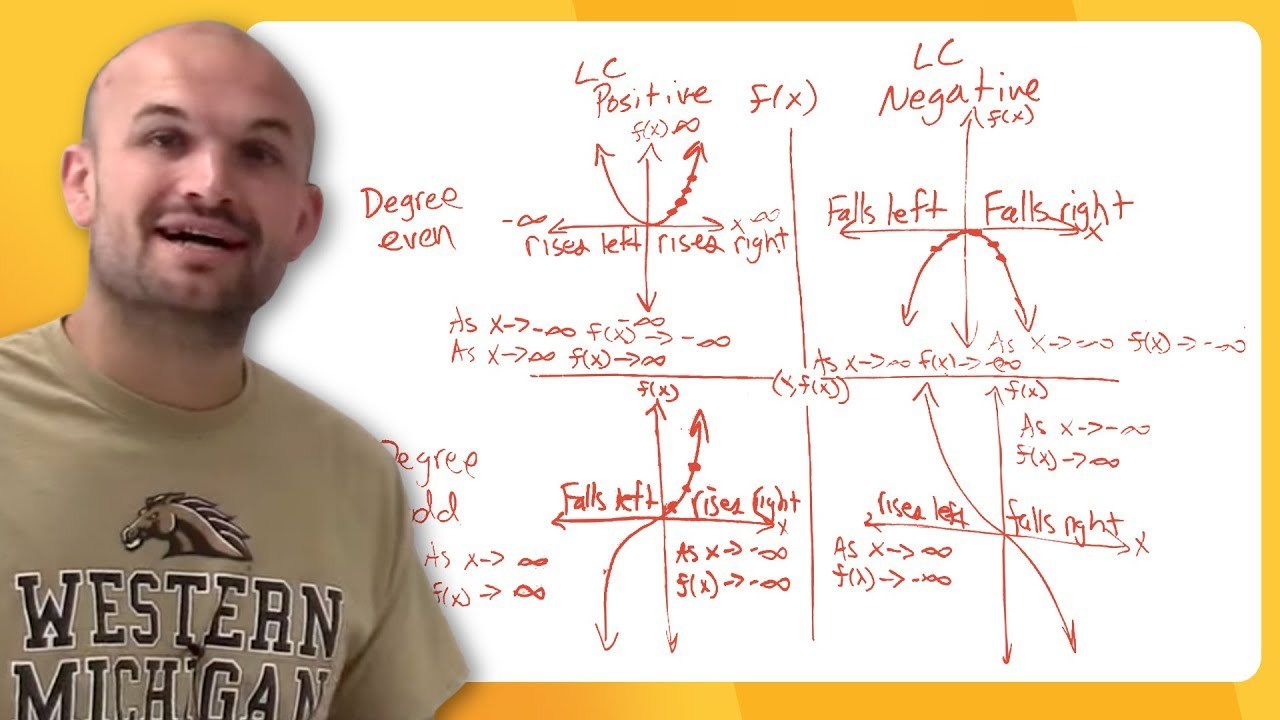 LC
Positive
f(x)
LC
Negative
f(x) ∞
f(x)
Degree
even
-∞
x ∞
rises left
rises right
Falls left
Falls right
x
-∞
As x→-∞ f(x)→-∞
As x→∞ f(x)→∞
As x→-∞ f(x)→-∞
As x→∞ f(x)→-∞
f(x)
(x, f(x))
f(x)
Degree
odd
As x→-∞
f(x)→∞
Falls left
rises right
x
rises left
falls right
x
As x→∞
f(x)→∞
As x→-∞
f(x)→-∞
As x→∞
f(x)→-∞
WESTERN
MICHIGAN